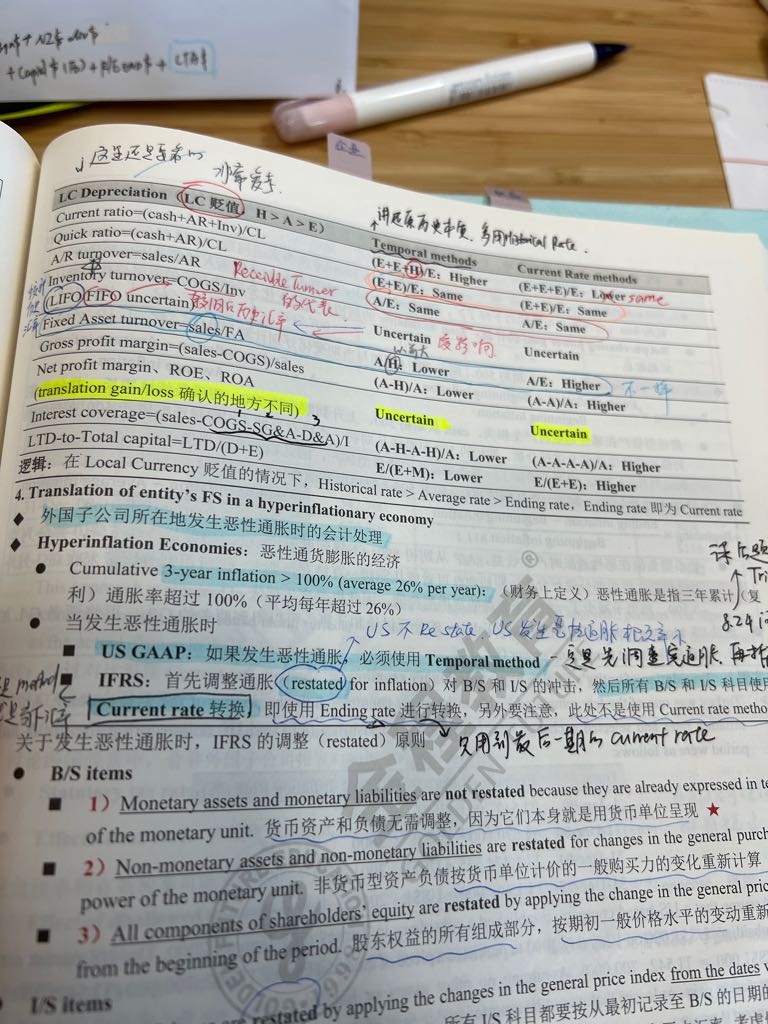 + Capital $ (历) + R/E end $ + CTA $
企业
这里还是要看的
非常爱考.
LC Depreciation (LC 贬值, H > A > E)
讲究原历史事实, 多用Historical Rate.
Temporal methods
Current Rate methods
Current ratio=(cash+AR+Inv)/CL
(E+E+H)/E: Higher
(E+E+E)/E: Lower same
Quick ratio=(cash+AR)/CL
(E+E)/E: Same
(E+E)/E: Same
A/R turnover=sales/AR
A/E: Same
A/E: Same
Receivable Turnover 的代表
Inventory turnover=COGS/Inv
(LIFO FIFO uncertain)
Uncertain 受影响
Uncertain
Fixed Asset turnover=sales/FA
A/H: Lower
A/E: Higher 不一样
Gross profit margin=(sales-COGS)/sales
(A-H)/A: Lower
(A-A)/A: Higher
Net profit margin、ROE、ROA
(translation gain/loss 确认的地方不同)
Uncertain
Uncertain
Interest coverage=(sales-COGS-SG&A-D&A)/I
(A-H-A-H)/A: Lower
(A-A-A-A)/A: Higher
LTD-to-Total capital=LTD/(D+E)
E/(E+M): Lower
E/(E+E): Higher
逻辑：在 Local Currency 贬值的情况下，Historical rate > Average rate > Ending rate，Ending rate 即为 Current rate
4. Translation of entity's FS in a hyperinflationary economy
◆ 外国子公司所在地发生恶性通胀时的会计处理
◆ Hyperinflation Economies：恶性通货膨胀的经济
● Cumulative 3-year inflation > 100% (average 26% per year)：（财务上定义）恶性通胀是指三年累计（复
利）通胀率超过 100%（平均每年超过 26%）
● 当发生恶性通胀时
US 不 Restate, US 发生恶性通胀概率小
■ US GAAP：如果发生恶性通胀，必须使用 Temporal method
■ IFRS：首先调整通胀（restated for inflation）对 B/S 和 I/S 的冲击，然后所有 B/S 和 I/S 科目使用
Current rate 转换，即使用 Ending rate 进行转换，另外要注意，此处不是使用 Current rate metho
只用到最后一期的 current rate
关于发生恶性通胀时，IFRS 的调整（restated）原则
● B/S items
■ 1）Monetary assets and monetary liabilities are not restated because they are already expressed in te
of the monetary unit. 货币资产和负债无需调整，因为它们本身就是用货币单位呈现 ★
■ 2）Non-monetary assets and non-monetary liabilities are restated for changes in the general purch
power of the monetary unit. 非货币型资产负债按货币单位计价的一般购买力的变化重新计算
■ 3）All components of shareholders' equity are restated by applying the change in the general pric
from the beginning of the period. 股东权益的所有组成部分，按期初一般价格水平的变动重新
I/S items
restated by applying the changes in the general price index from the dates w
所有 I/S 科目都要按从最初记录至 B/S 的日期的